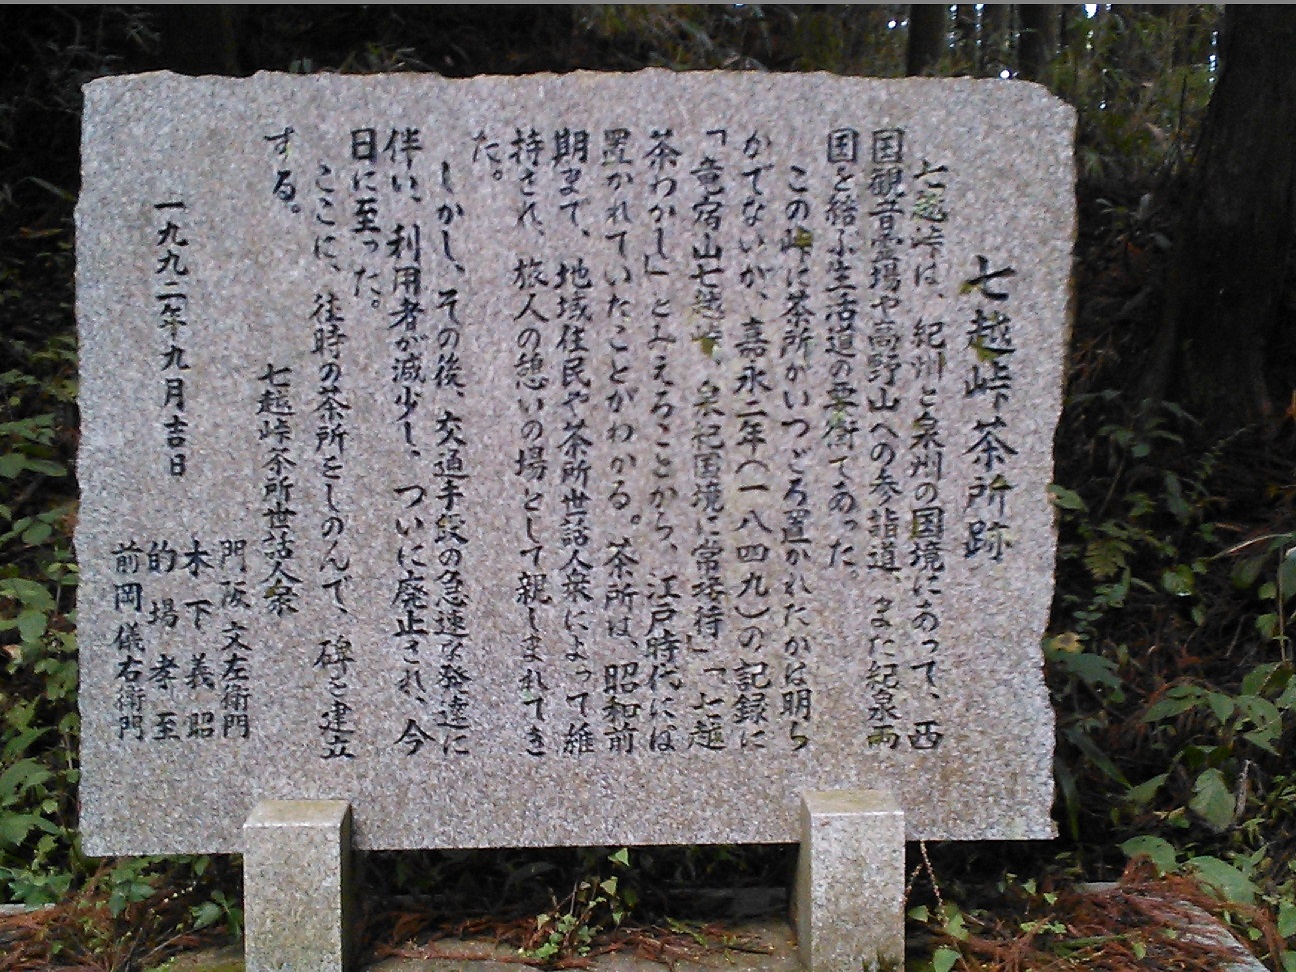 七越峠茶所跡
七越峠は、紀州と泉州の国境にあって、西
国観音霊場や高野山への参詣道、また紀泉両
国を結ぶ生活道の要衝であった。
この峠に茶所がいつごろ置かれたかは明ら
かでないが、嘉永二年(一八四九)の記録に
「竜宿山七越峠、泉紀国境に常接待」「七越
茶わかし」とみえることから、江戸時代には
置かれていたことがわかる。茶所は、昭和前
期まで、地域住民や茶所世話人衆によって維
持され、旅人の憩いの場として親しまれてき
た。
しかし、その後、交通手段の急速な発達に
伴い、利用者が減少し、ついに廃止され、今
日に至った。
ここに、往時の茶所をしのんで、碑を建立
する。
七越峠茶所世話人衆
門阪文左衛門
木下義昭
的場孝至
前岡儀右衛門
一九九二年九月吉日